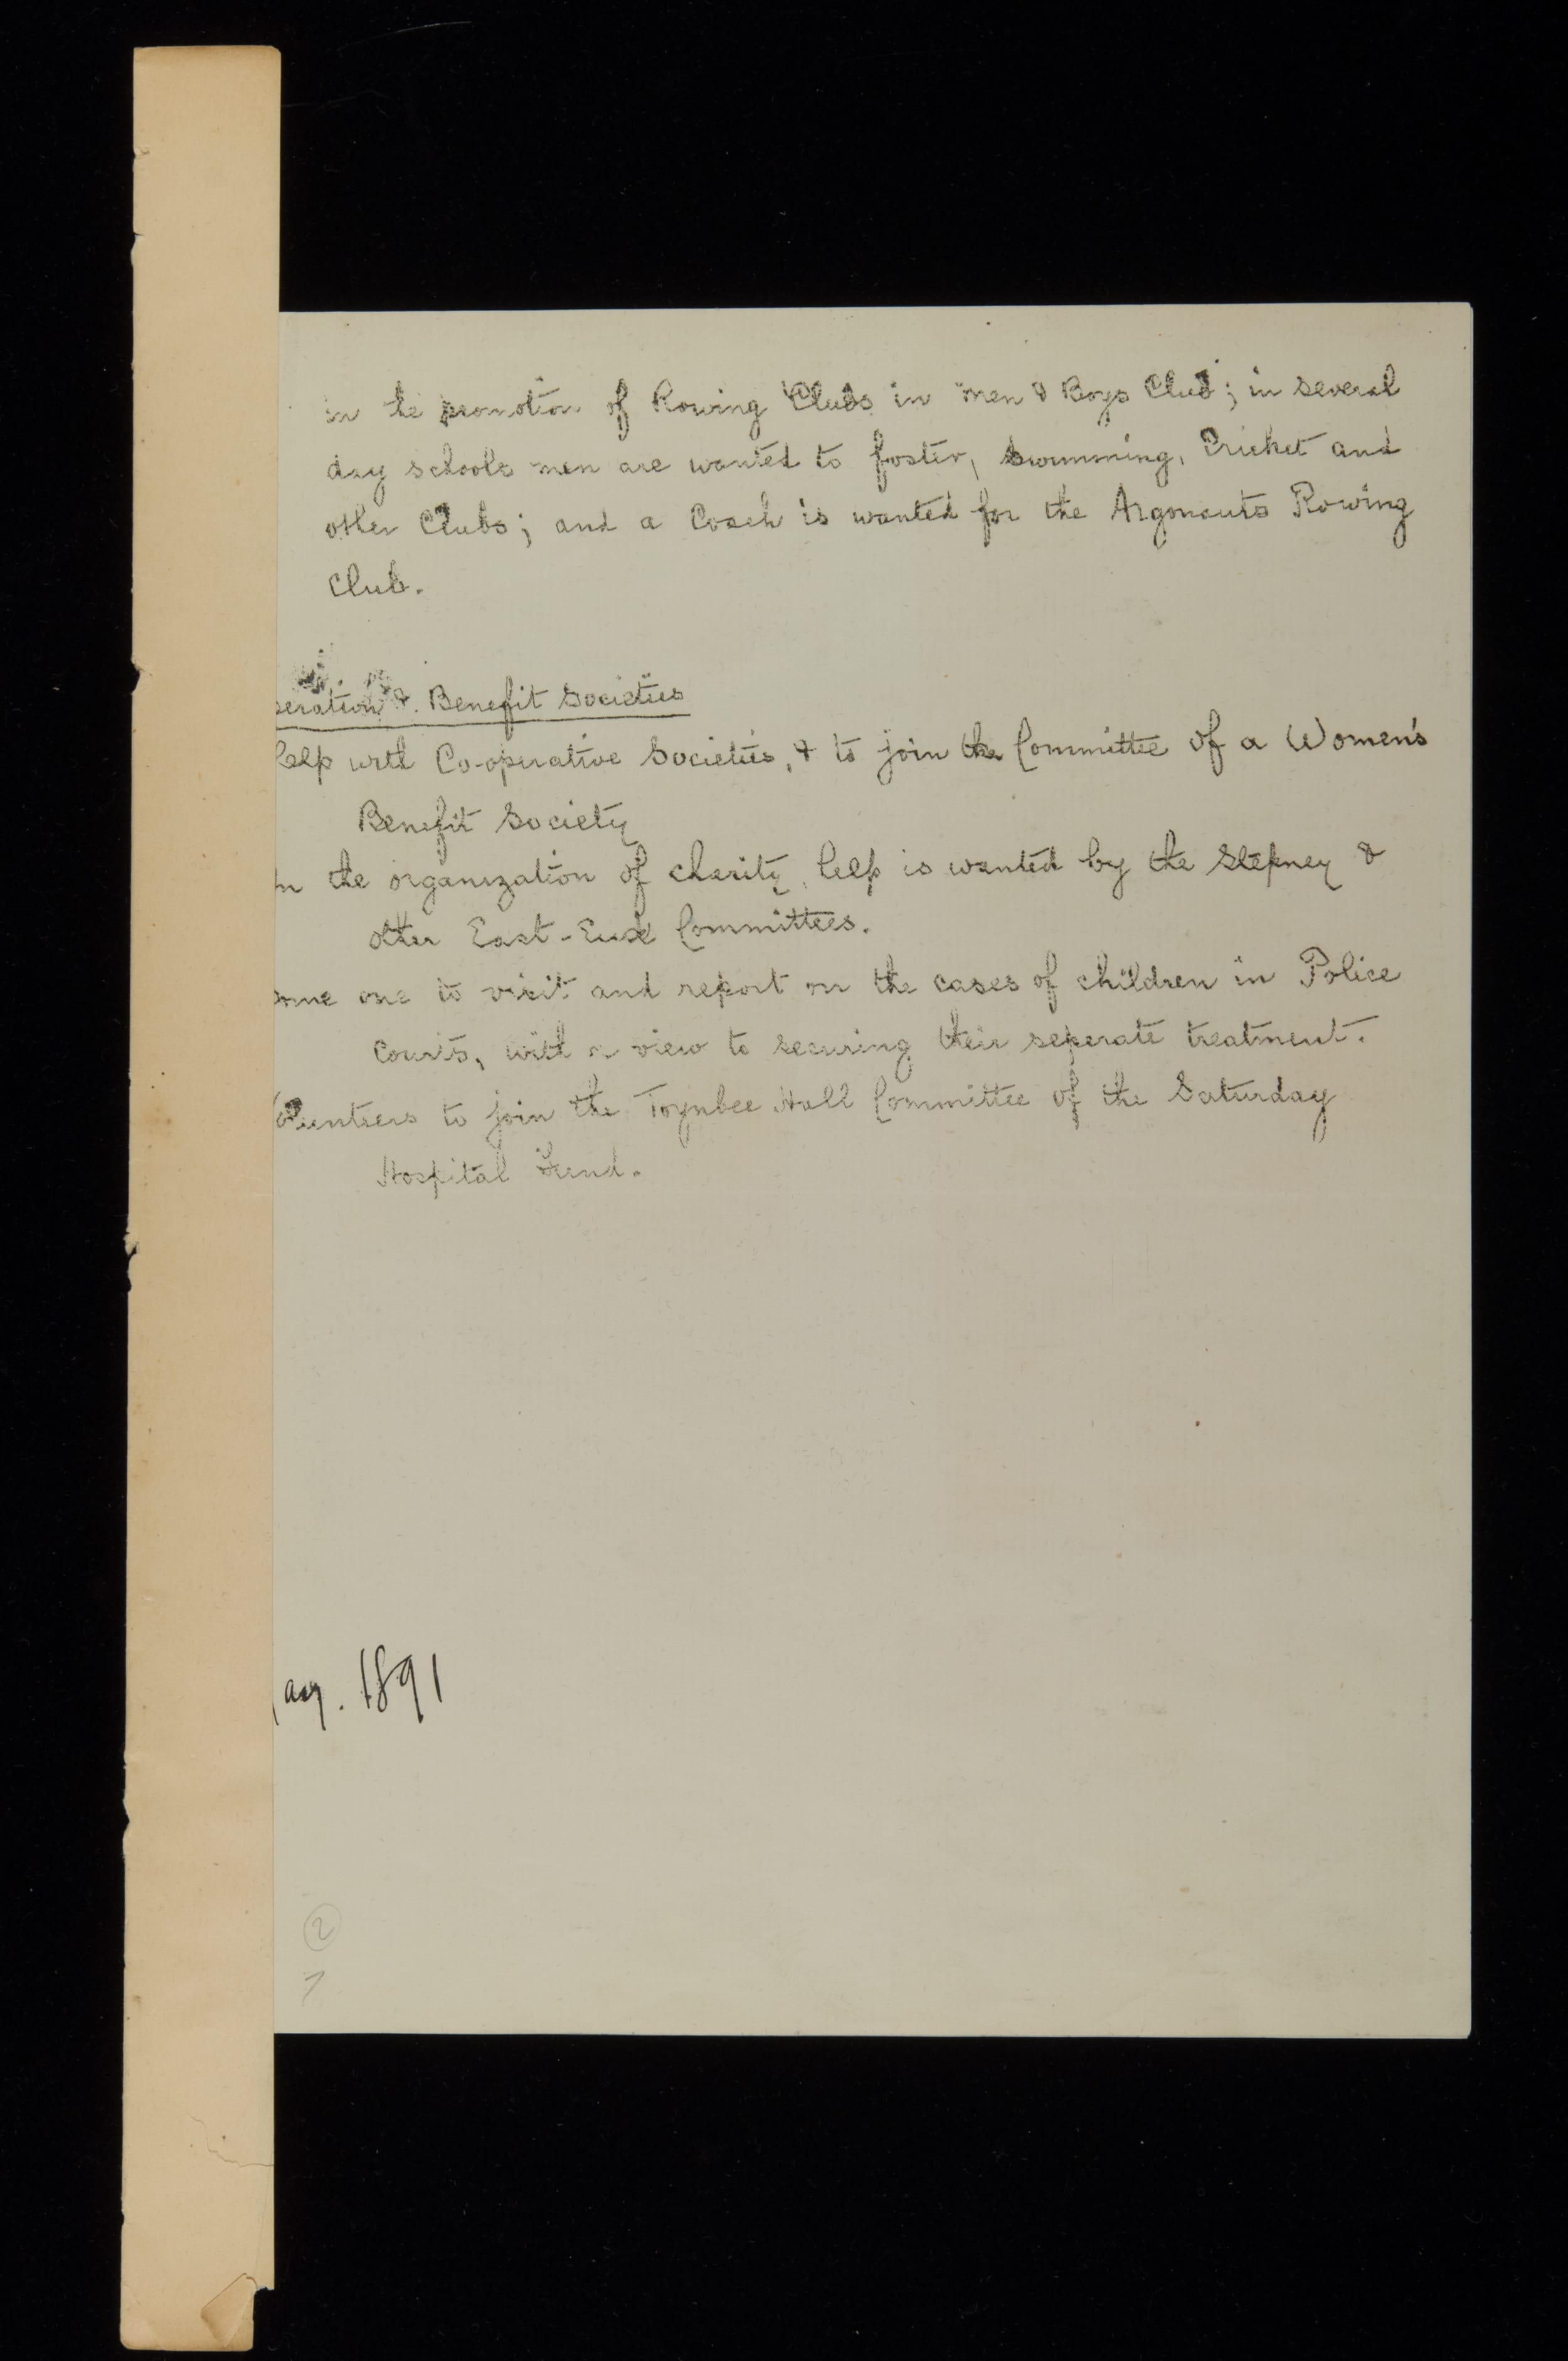 in the promotion of Rowing Clubs in men & Boys Club; in several
day schools men are wanted to foster, swimming, Cricket and
other Clubs; and a Coach is wanted for the Argonauts Rowing
Club.
peration & Benefit Societies
help with Co-operative Societies, & to join the Committee of a Women's
Benefit Society
n the organization of charity, help is wanted by the Stepney &
other East-End Committees.
ome one to visit and report on the cases of children in Police
Courts, with a view to securing their seperate treatment.
olunteers to join the Toynbee Hall Committee of the Saturday
Hospital Fund.
1891
2